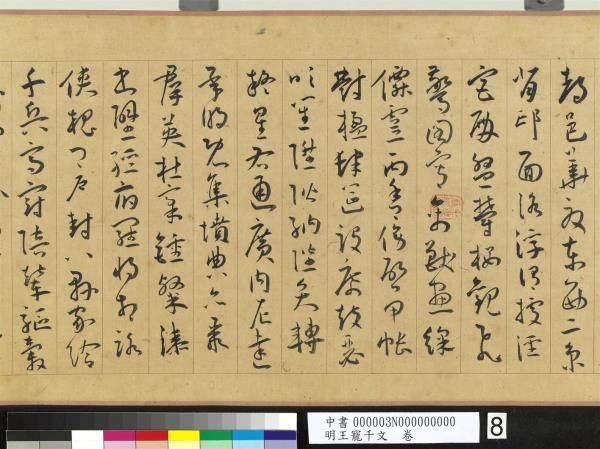 都邑華夏東西二京
背邙面洛浮渭據涇
宮殿盤鬱樓觀飛
驚圖寫禽獸畫綵
僊靈丙舍傍啟甲帳
對楹肆筵設席鼓瑟
吹笙陞階納陛弁轉
疑星右通廣內左達
承明既集墳典亦聚
羣英杜稾鍾隸漆
書壁經府羅將相路
俠槐卿戶封八縣家給
千兵高冠陪輦驅轂
中書 000003N000000000
明王寵千文 卷
8